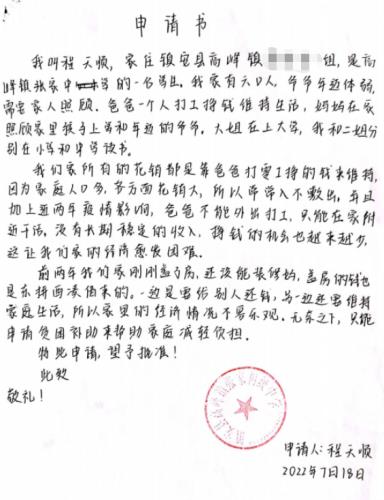 申请书
我叫程天顺，家住镇安县高峰镇 组，是高
峰镇张家中学的一名学生。我家有六口人，爷爷年迈体弱，
需要家人照顾。爸爸一个人打工挣钱维持生活，妈妈在家
照顾家里孩子上学和年迈的爷爷。大姐在上大学，我和二姐分
别在小学和中学读书。
我们家所有的花销都是靠爸爸打零工挣的钱来维持，
因为家庭人口多，各方面花销大，所以常常入不敷出，并且
加上近两年疫情影响，爸爸不能外出打工，只能在家附
近干活，没有长期稳定的收入，挣钱的机会也越来越少，
这让我们家的经济愈发困难。
前两年我们家刚刚盖了房，还没能装修好，盖房的钱也
是东拼西凑借来的。一边是要给别人还钱，另一边还要维持
家庭生活，所以家里的经济情况不容乐观。无奈之下，只能
申请贫困补助来帮助家庭减轻负担。
特此申请，望予批准！
此致
敬礼！
申请人：程天顺
2022年7月18日